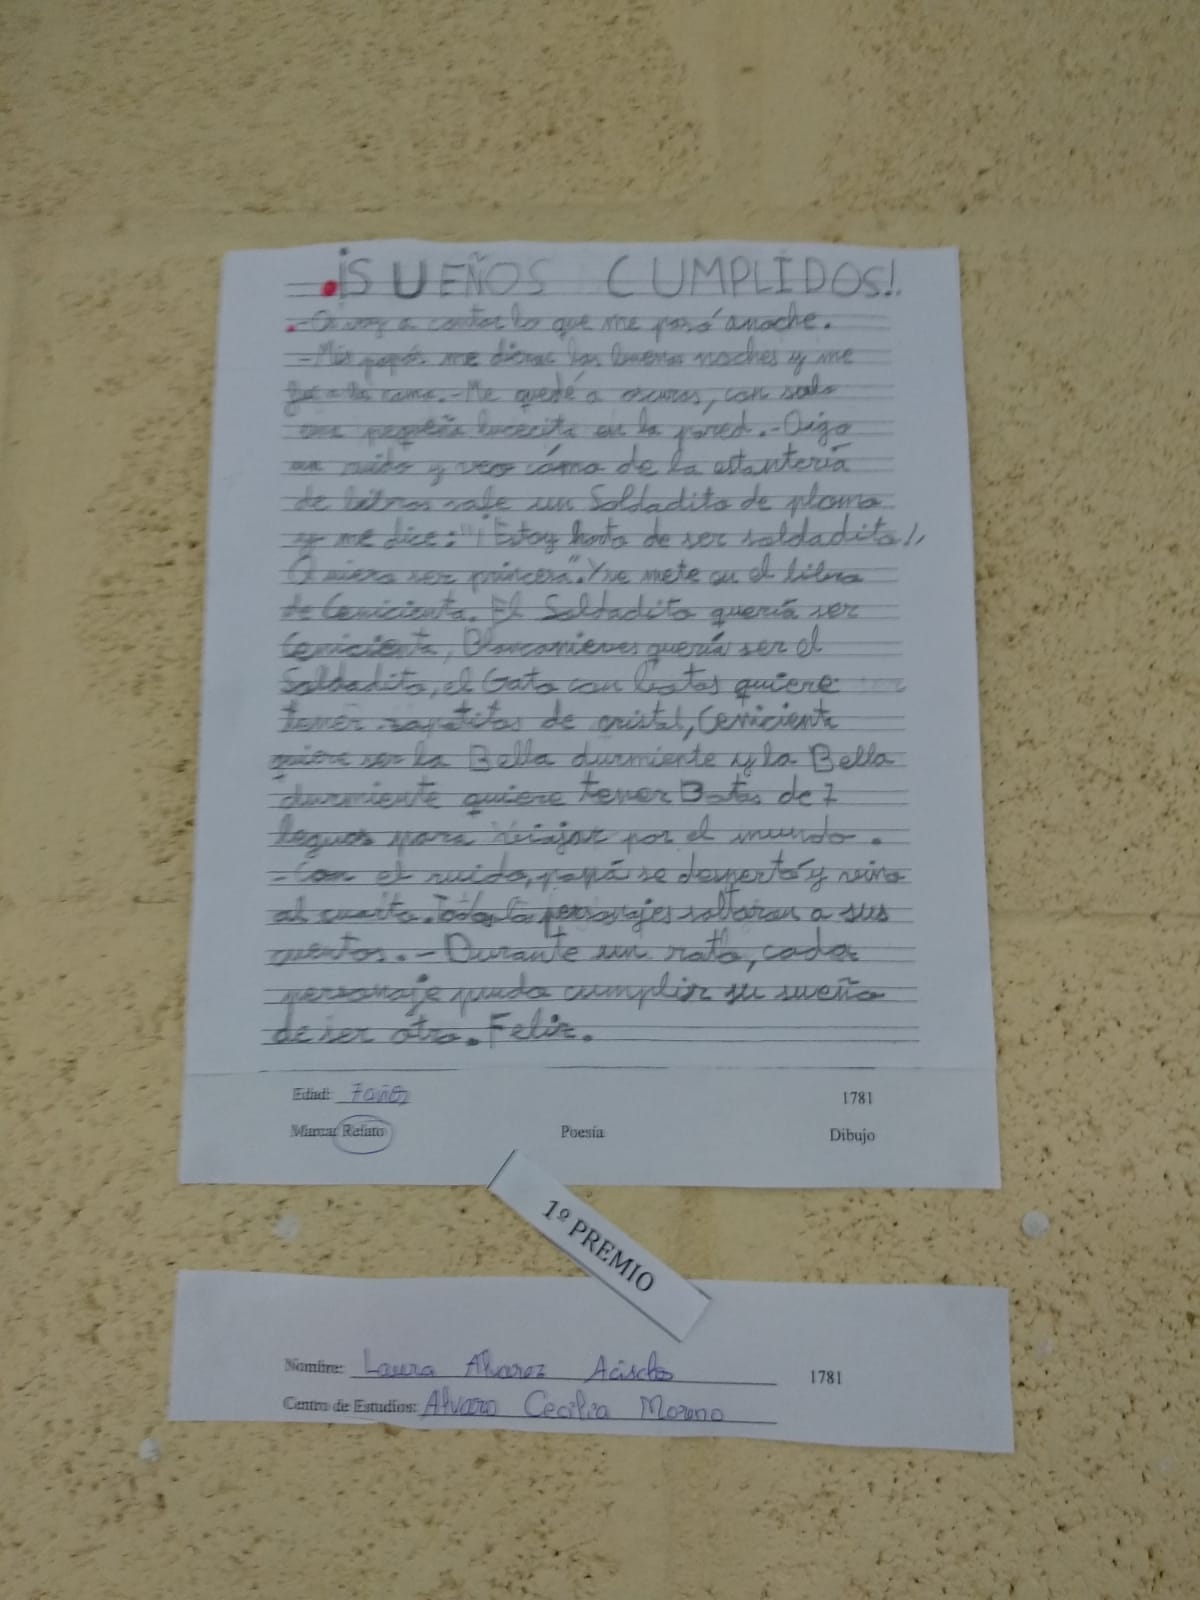 ¡SUEÑOS CUMPLIDOS!
-Os voy a contar lo que me pasó anoche.
-Mis papás me dieron las buenas noches y me
fui a la cama.-Me quedé a oscuras, con solo
una pequeña lucecita en la pared.-Oigo
un ruido y veo cómo de la estantería
de libros sale un Soldadito de plomo
y me dice:"¡Estoy harto de ser soldadito!,
Quiero ser princesa". Y se mete en el libro
de Cenicienta. El Soldadito quería ser
Cenicienta, Blancanieves quería ser el
Soldadito, el Gato con botas quiere
tener zapatitos de cristal, Cenicienta
quiere ser la Bella durmiente y la Bella
durmiente quiere tener Botas de 7
leguas para viajar por el mundo.
-Con el ruido, papá se despertó y vino
al cuarto. Todos los personajes saltaron a sus
cuentos.-Durante un rato, cada
personaje pudo cumplir su sueño
de ser otro. Feliz.
Edad: 7 años 1781
Marca: Relato Poesía Dibujo
1º PREMIO
Nombre: Laura Alvarez Acisclo 1781
Centro de Estudios: Alvaro Cecilia Moreno